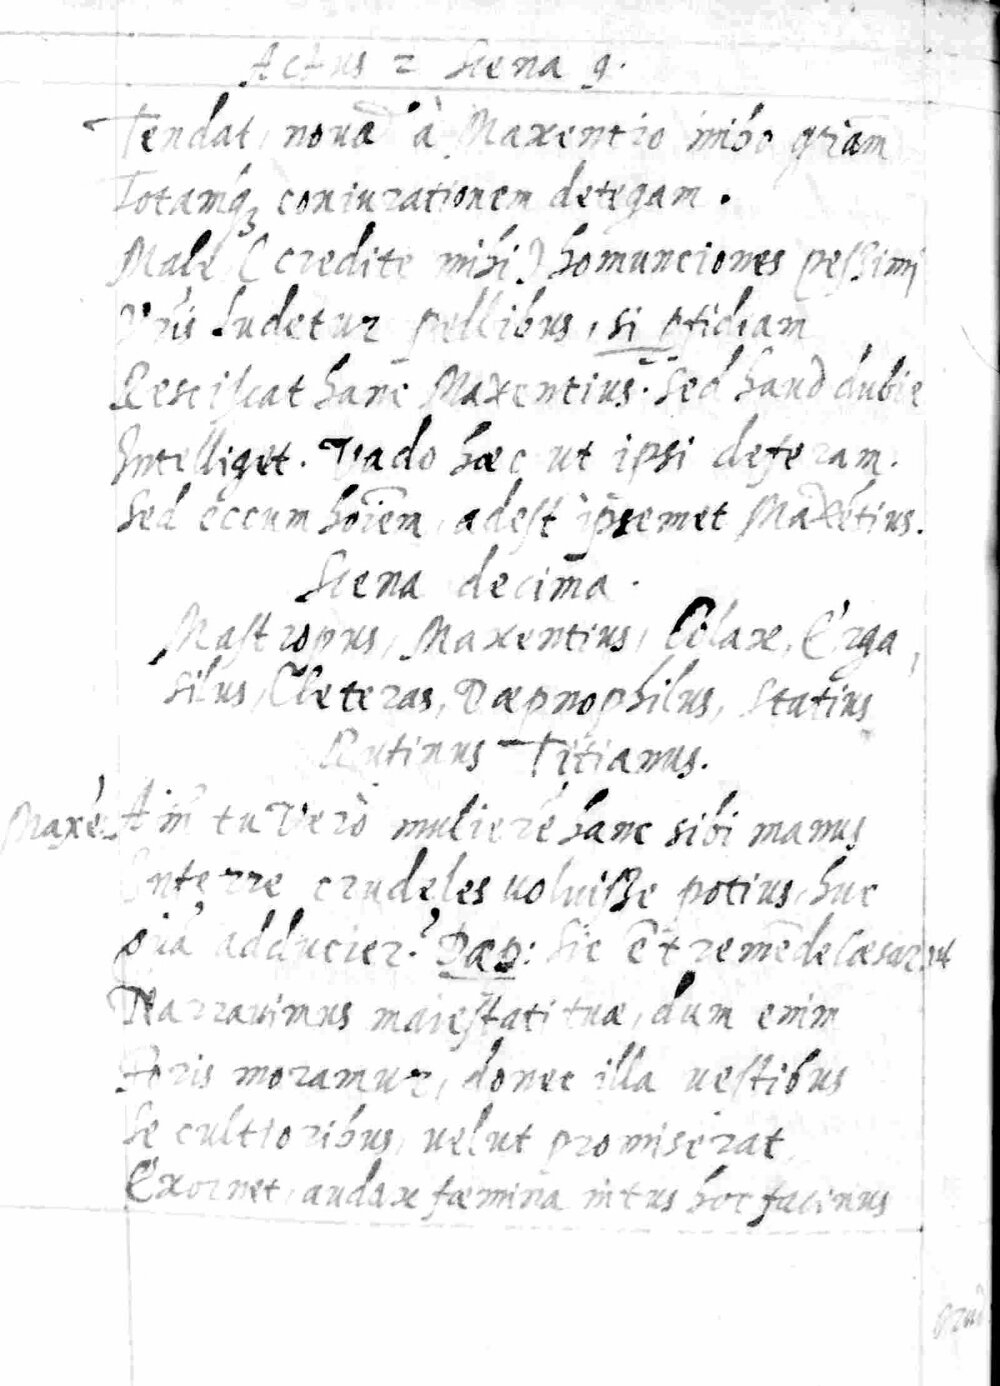 Actus 2 Scena 9.
Tendat, nouã à Maxentio inibo grãm
Totamq₃ coniurationem detegam.
Male (credite mihi) homunciones peſsimi
Vrĩs ludetur pellibus, si pfidiam
Resciſcat hanc Maxentius. Sed haud dubie
Intelliget. Vado hæc ut ipsi deferam.
Sed eccum hoĩem, adeſt ipsemet Maxẽtius.
Scena decima.
Maſtropus, Maxentius, Colax, Erga,
silus, Cleteras, Dæpnophilus, Statius
Rutinus Titianus.
Maxẽ. Ain tu Verò mulierẽ hanc sibi manus
Inferre crudeles uoluiſse potius, huc
quã adducier? Dæp: Sic est remẽ de Cæsar ut
Narrauimus maieſtati tuæ, dum enim
Foris moramur, donec illa ueſtibus
Se cultioribus, uelut promiserat,
Exornet, audax fæmina intus hoc facinus